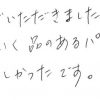 いただきました
く品のあるパ
しかったです。